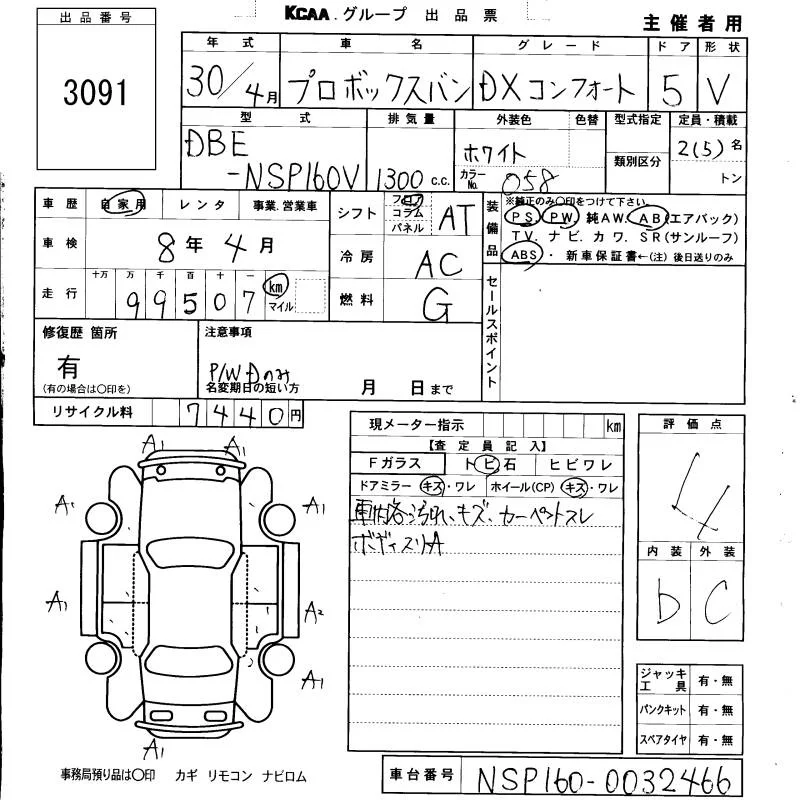 KCAA.グループ 出品票
主催者用
出品番号
3091
年式 車名 グレード ドア 形状
30/4月 プロボックスバン DXコンフォート 5 V
型式 排気量 外装色 色替 型式指定 定員・積載
DBE
-NSP160V 1300 c.c.
ホワイト
カラーNo. 058
類別区分
2(5)名
トン
車歴 自家用 レンタ 事業.営業車
車検 8年4月
走行 十万 万 千 百 十 一
99507 km マイル
シフト フロア コラム パネル AT
冷房 AC
燃料 G
装備品
※純正のみ○印をつけて下さい。
PS. PW 純AW. AB(エアバック)
TV. ナビ. カワ. SR(サンルーフ)
ABS・ 新車保証書←(注) 後日送りのみ
セールスポイント
修復歴 箇所
有
(有の場合は○印を)
注意事項
P/W Dのみ
名変期日の短い方 月 日まで
リサイクル料 7440円
現メーター指示 km
【査定員記入】
Fガラス トビ石 ヒビワレ
ドアミラー キズ・ワレ ホイール(CP) キズ・ワレ
汚れ、キズ、カーペットスレ
ボディスリA
評価点
4
内装 外装
b C
A1 A1
A1 A1
A1 A2
A1 A1
A1
ジャッキ工具 有・無
パンクキット 有・無
スペアタイヤ 有・無
事務局預り品は○印 カギ リモコン ナビロム
車台番号 NSP160-0032466